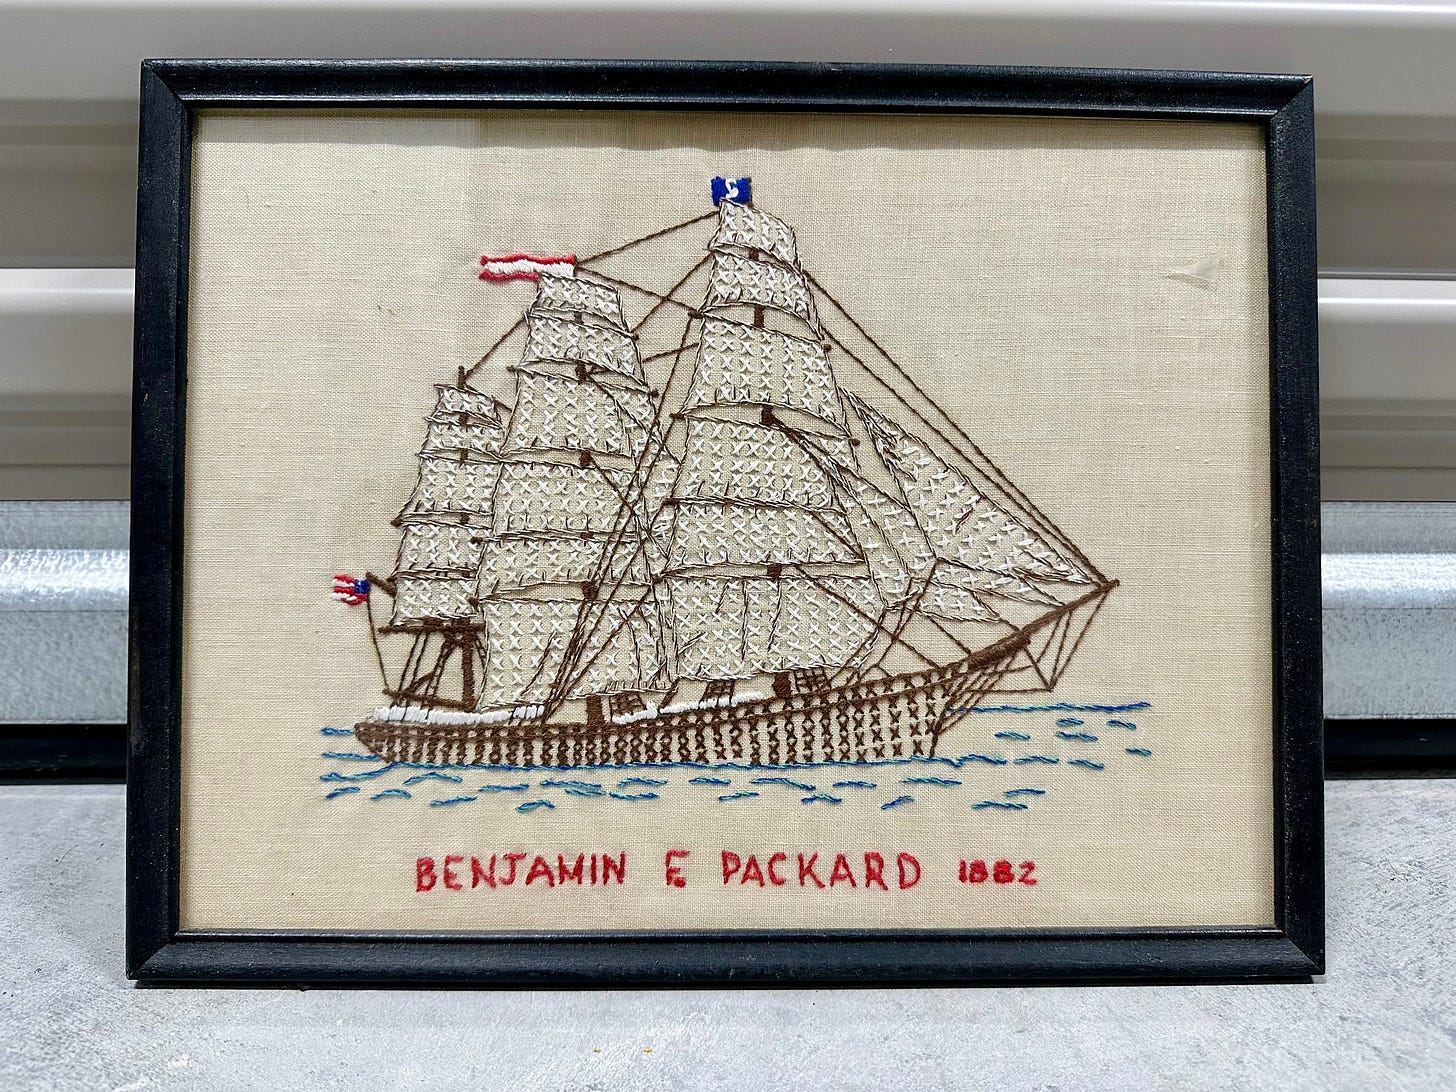 S
BENJAMIN F PACKARD 1882